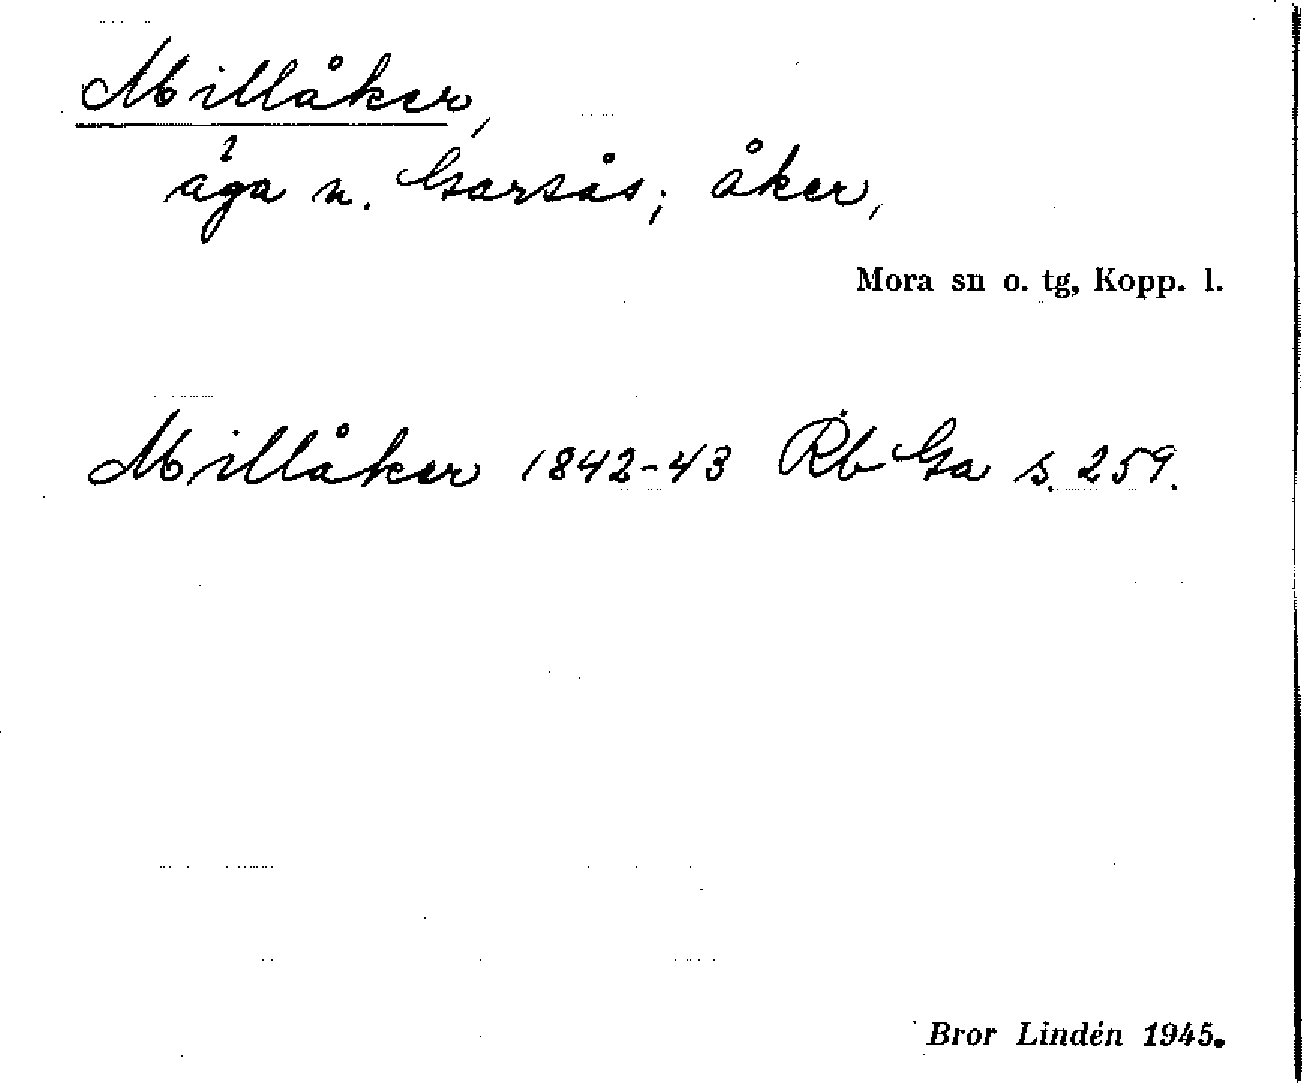 Millåker,
äga n. Garsås; åker,
Mora sn o. tg, Kopp. l.
Millåker 1842-43 Rb Ga s. 259.
Bror Lindén 1945.